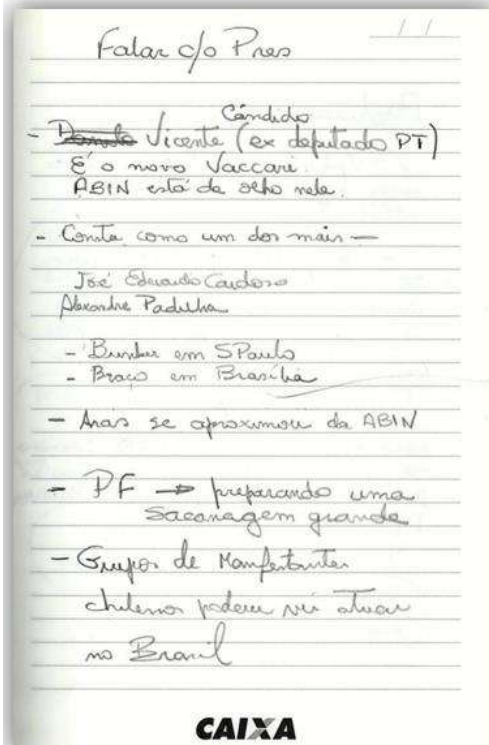 Falar c/o Pres
/ /
Cândido
- Vicente (ex deputado PT)
É o novo Vaccari.
ABIN está de olho nele.
- Consta como um dos mais —
José Eduardo Cardoso
Alexandre Padilha
- Bunker em SPaulo
- Braço em Brasília
- Aras se aproximou da ABIN
- PF → preparando uma
sacanagem grande
- Grupos de Manifestantes
chilenos podem vir atuar
no Brasil
CAIXA